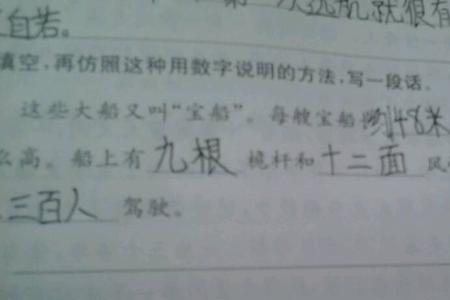 一次远航就很有
自若。
填空,再仿照这种用数字说明的方法,写一段话。
这些大船又叫“宝船”。每艘宝船 148米
么高。船上有 九根 桅杆和 十二面 风
三百人 驾驶。